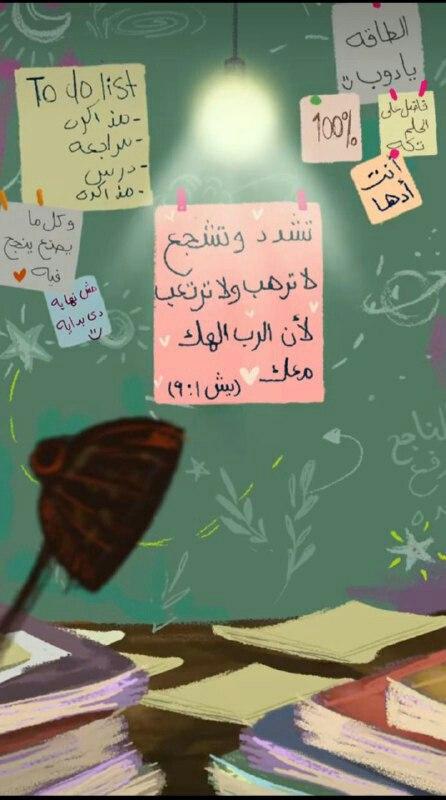 الطاقه
يادوب
100%
فاضل على
الحلم
تكه
أنت
أدها
To do list
- مذاكره
- مراجعه
- درس
- مذاكره
وكل ما
يصنع ينجح
فيه
مش نهايه
دى بدايه
تشدد وتشجع
لا ترهب ولا ترتعب
لأن الرب الهك
معك (يش ١:٩)